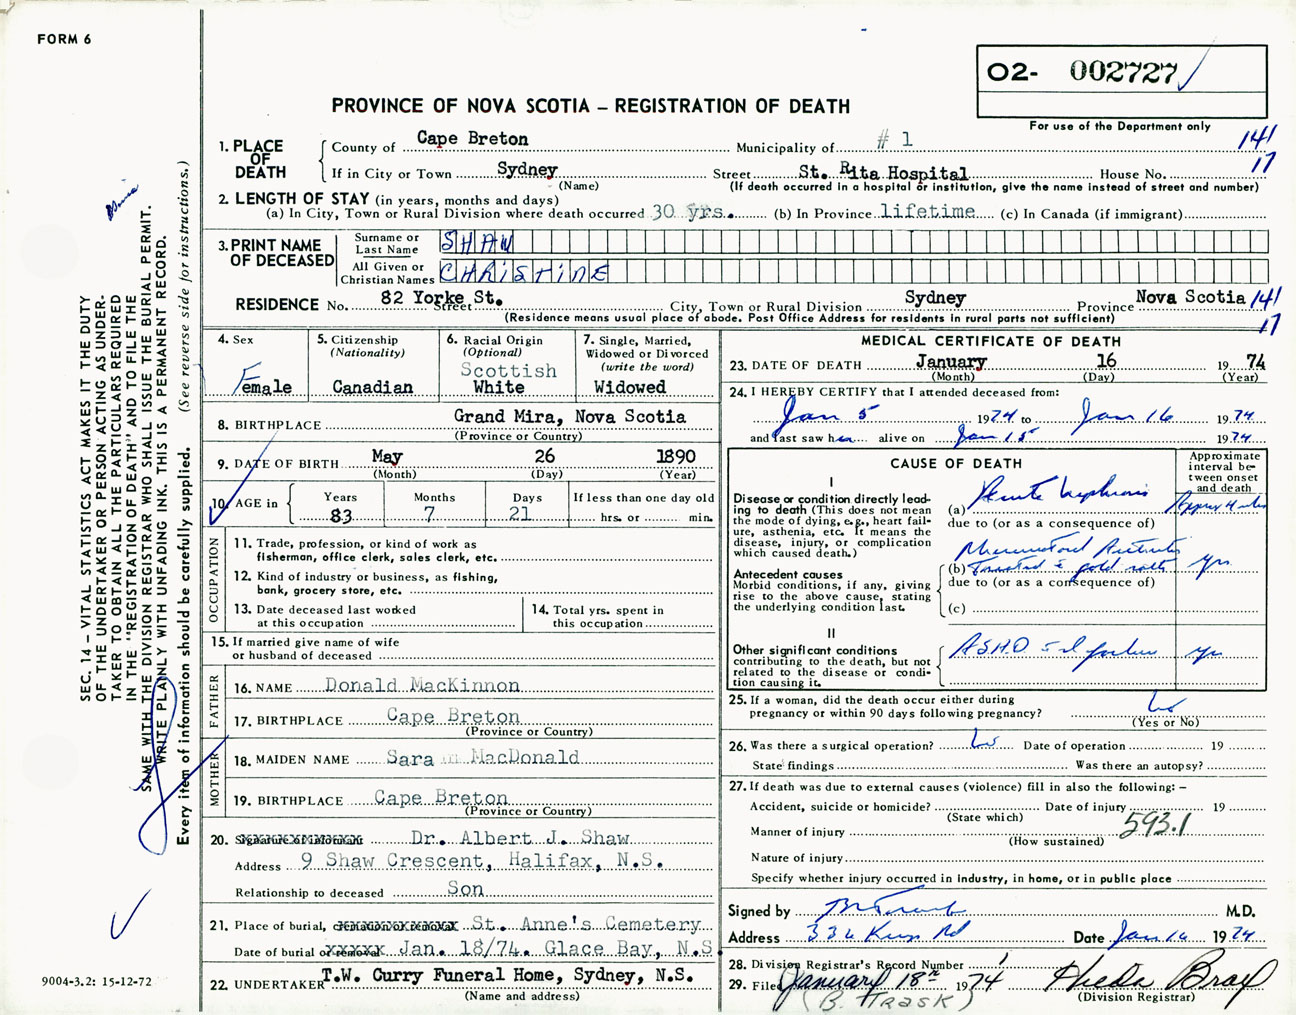 FORM 6
O2- 002727
For use of the Department only
PROVINCE OF NOVA SCOTIA – REGISTRATION OF DEATH
141
17
1. PLACE OF DEATH
County of Cape Breton Municipality of # 1
If in City or Town Sydney Street St. Rita Hospital House No.
(Name) (If death occurred in a hospital or institution, give the name instead of street and number)
2. LENGTH OF STAY (in years, months and days)
(a) In City, Town or Rural Division where death occurred 30 yrs. (b) In Province lifetime (c) In Canada (if immigrant)
3. PRINT NAME OF DECEASED
Surname or Last Name SHAW
All Given or Christian Names CHRISTINE
RESIDENCE No. 82 Yorke St. Street City, Town or Rural Division Sydney Province Nova Scotia 141
17
(Residence means usual place of abode. Post Office Address for residents in rural parts not sufficient)
4. Sex
Female
5. Citizenship
(Nationality)
Canadian
6. Racial Origin
(Optional)
Scottish
White
7. Single, Married,
Widowed or Divorced
(write the word)
Widowed
8. BIRTHPLACE Grand Mira, Nova Scotia
(Province or Country)
9. DATE OF BIRTH May 26 1890
(Month) (Day) (Year)
10. AGE in
Years Months Days If less than one day old
83 7 21 hrs. or min.
OCCUPATION
11. Trade, profession, or kind of work as
fisherman, office clerk, sales clerk, etc.
12. Kind of industry or business, as fishing,
bank, grocery store, etc.
13. Date deceased last worked
at this occupation
14. Total yrs. spent in
this occupation
15. If married give name of wife
or husband of deceased
FATHER
16. NAME Donald MacKinnon
17. BIRTHPLACE Cape Breton
(Province or Country)
MOTHER
18. MAIDEN NAME Sara MacDonald
19. BIRTHPLACE Cape Breton
(Province or Country)
20. Signature of informant Dr. Albert J. Shaw
Address 9 Shaw Crescent, Halifax, N.S.
Relationship to deceased Son
21. Place of burial, cremation or removal St. Anne's Cemetery
Date of burial or removal Jan. 18/74. Glace Bay, N.S.
22. UNDERTAKER T.W. Curry Funeral Home, Sydney, N.S.
(Name and address)
MEDICAL CERTIFICATE OF DEATH
23. DATE OF DEATH January 16 19 74
(Month) (Day) (Year)
24. I HEREBY CERTIFY that I attended deceased from:
Jan 5 1974 to Jan 16 1974
and last saw her alive on Jan 15 1974
CAUSE OF DEATH
Approximate interval between onset and death
I
Disease or condition directly leading to death (This does not mean the mode of dying, e.g., heart failure, asthenia, etc. It means the disease, injury, or complication which caused death.)
(a) Acute
due to (or as a consequence of)
Antecedent causes
Morbid conditions, if any, giving rise to the above cause, stating the underlying condition last.
Rheumatoid Arthritis
(b) Treated c gold salts yrs
due to (or as a consequence of)
(c)
II
Other significant conditions
contributing to the death, but not related to the disease or condition causing it.
ASHD yrs
25. If a woman, did the death occur either during
pregnancy or within 90 days following pregnancy? No
(Yes or No)
26. Was there a surgical operation? No Date of operation 19
State findings Was there an autopsy?
27. If death was due to external causes (violence) fill in also the following: –
Accident, suicide or homicide? Date of injury 19
(State which)
593.1
Manner of injury
(How sustained)
Nature of injury
Specify whether injury occurred in industry, in home, or in public place
Signed by M.D.
Address 336 Kings Rd Date Jan 16 1974
28. Division Registrar's Record Number 1
29. Filed January 18th 1974
(B. TRASK) (Division Registrar)
SEC. 14 – VITAL STATISTICS ACT MAKES IT THE DUTY
OF THE UNDERTAKER OR PERSON ACTING AS UNDERTAKER
TO OBTAIN ALL THE PARTICULARS REQUIRED
IN THE "REGISTRATION OF DEATH" AND TO FILE THE
SAME WITH THE DIVISION REGISTRAR WHO SHALL ISSUE THE BURIAL PERMIT.
WRITE PLAINLY WITH UNFADING INK. THIS IS A PERMANENT RECORD.
Every item of information should be carefully supplied. (See reverse side for instructions.)
9004-3.2: 15-12-72